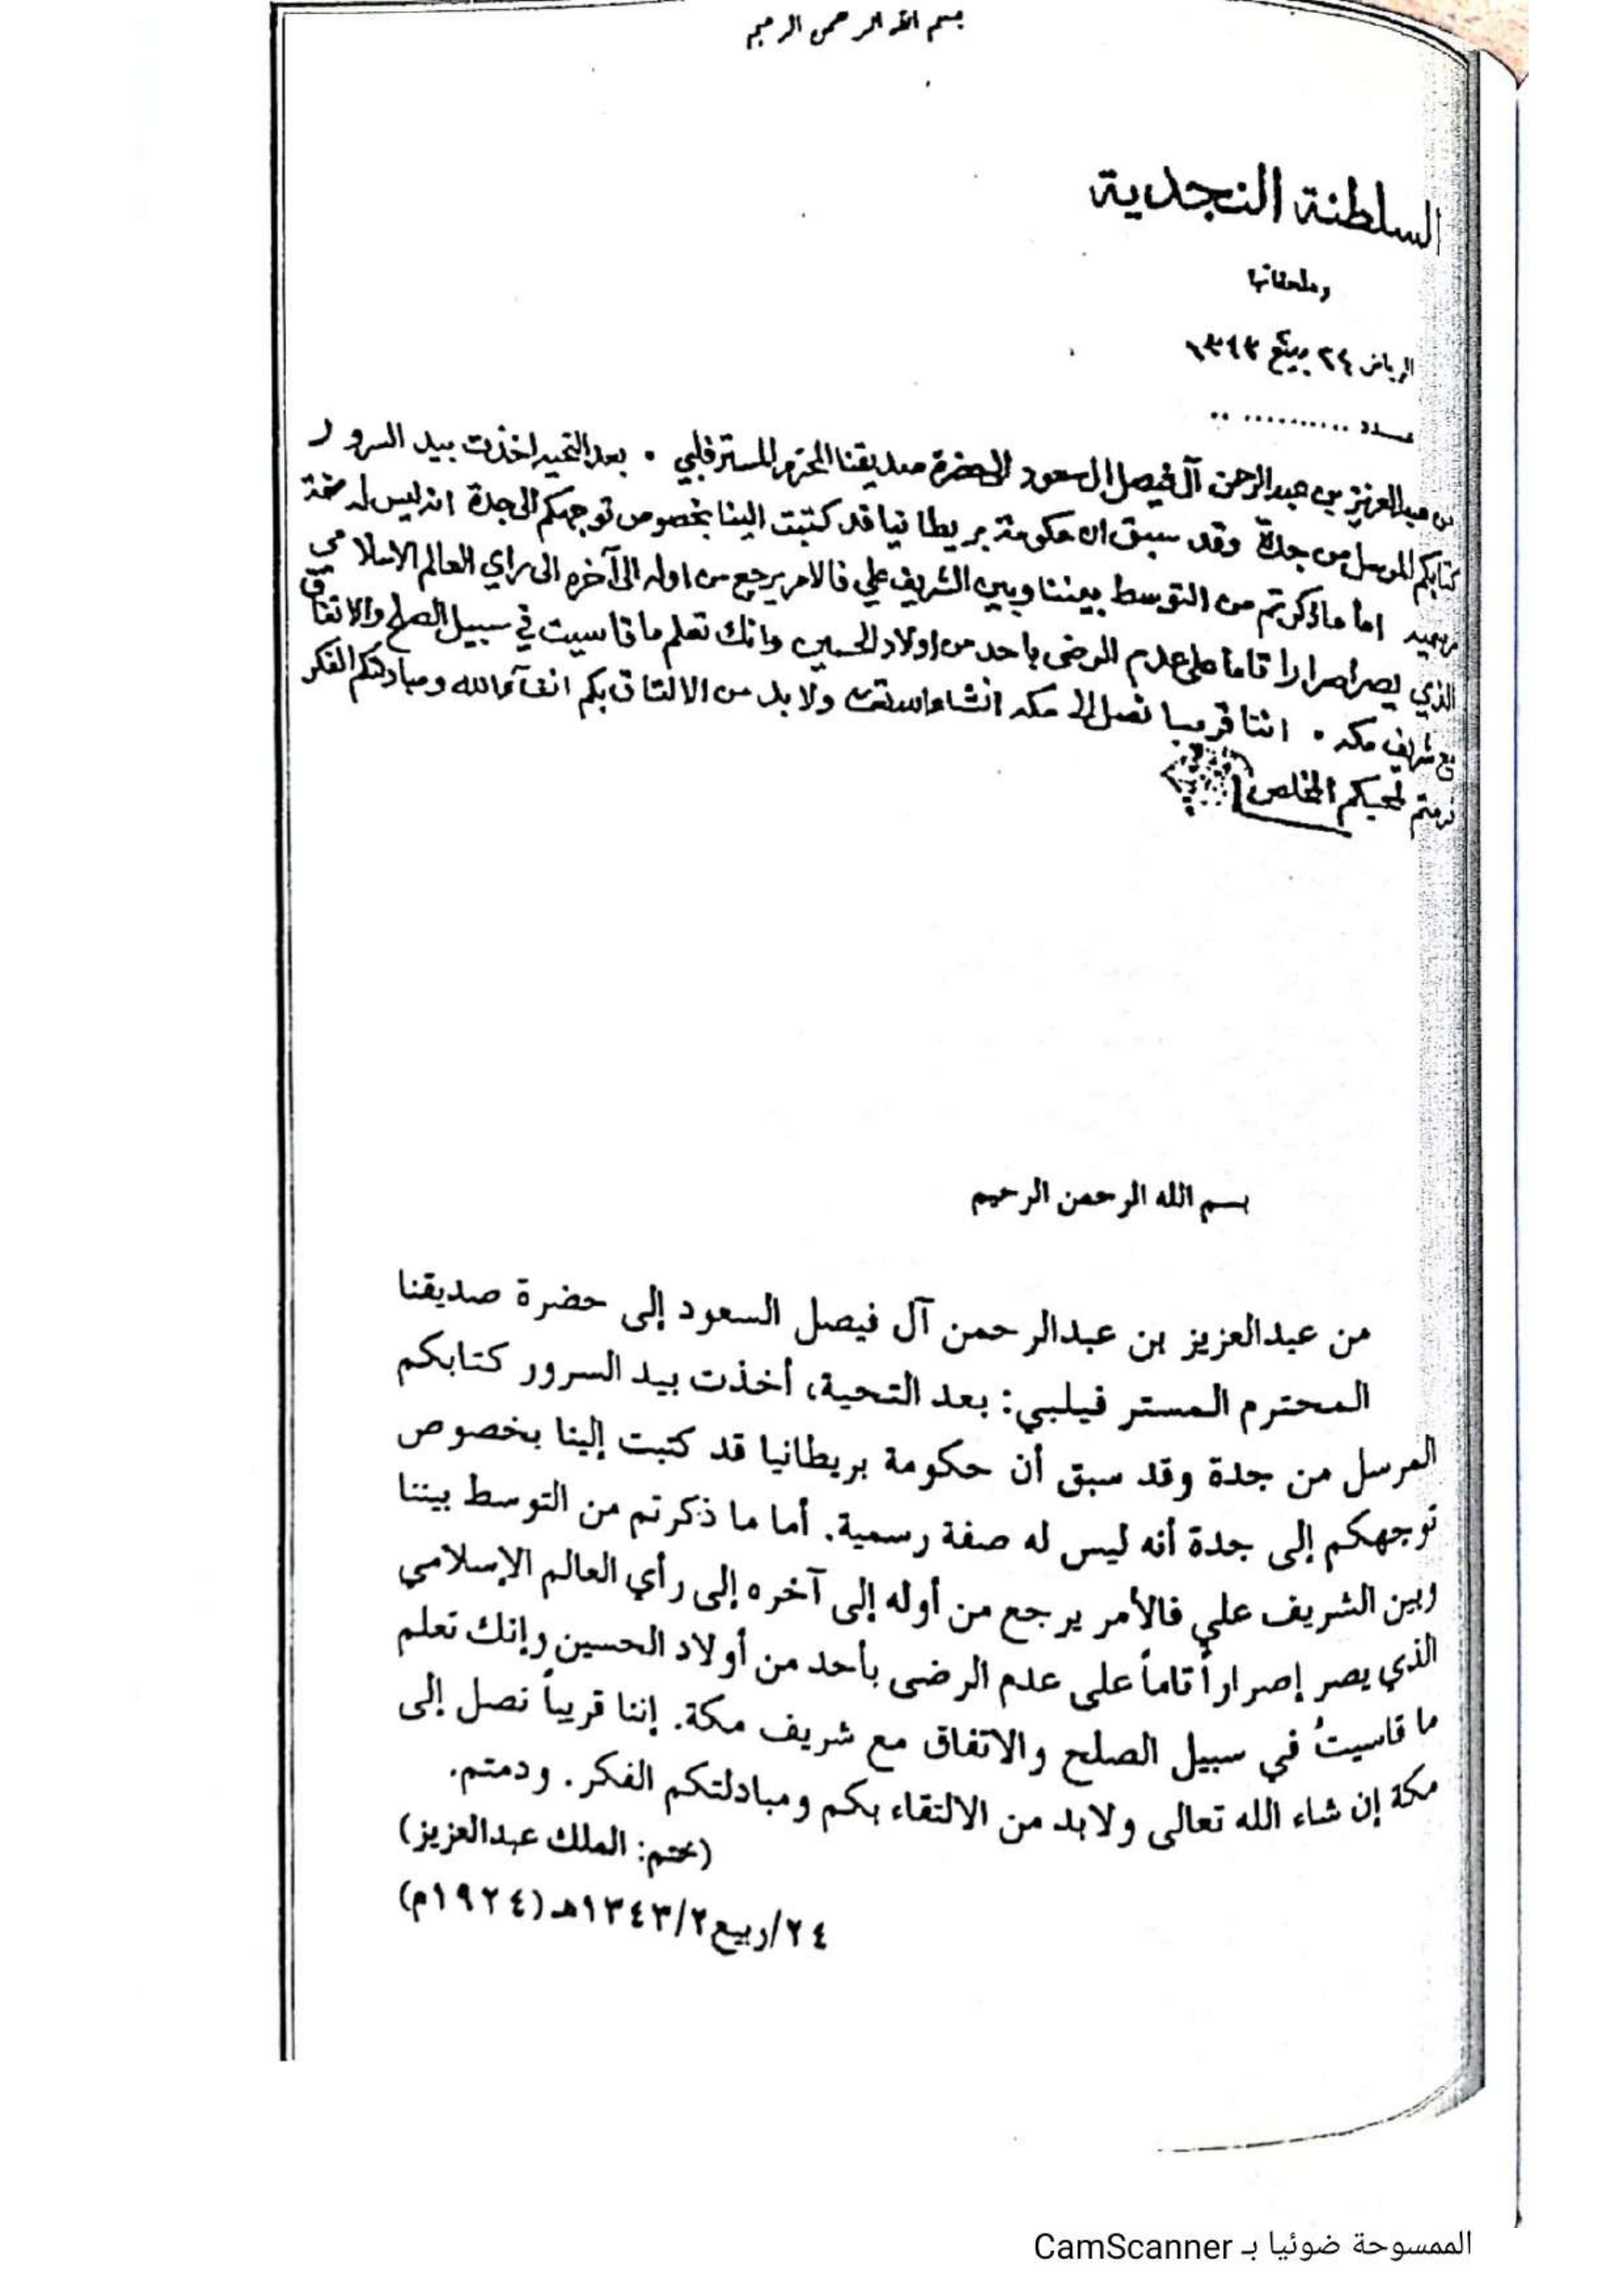 بسم الله الرحمن الرحيم
السلطنة النجدية
وملحقاتها
الرياض ٢٤ ١٣٤٣
عدد ...........
من عبدالعزيز بن عبدالرحمن آل فيصل السعود الى حضرة صديقنا المحترم المستر فلبي . بعد التحيه اخذت بيد السرور
كتابكم المرسل من جدة وقد سبق ان حكومة بريطانيا قد كتبت الينا بخصوص توجهكم الى جدة انه ليس له صفة
رسميه اما ما ذكرتم من التوسط بيننا وبين الشريف علي فالامر يرجع من اوله الى آخره الى راي العالم الاسلامي
الذي يصر اصرارا تاما على عدم الرضى باحد من اولاد الحسين وانك تعلم ما قاسيت في سبيل الصلح والاتفاق
مع شريف مكه . اننا قريبا نصل الى مكه انشاء ولا بد من الالتقا بكم انشاء الله ومبادلتكم الفكر
ودمتم لمحبكم المخلص
بسم الله الرحمن الرحيم
من عبدالعزيز بن عبدالرحمن آل فيصل السعود إلى حضرة صديقنا
المحترم المستر فيلبي: بعد التحية، أخذت بيد السرور كتابكم
المرسل من جدة وقد سبق أن حكومة بريطانيا قد كتبت إلينا بخصوص
توجهكم إلى جدة أنه ليس له صفة رسمية. أما ما ذكرتم من التوسط بيننا
وبين الشريف علي فالأمر يرجع من أوله إلى آخره إلى رأي العالم الإسلامي
الذي يصر إصراراً تاماً على عدم الرضى بأحد من أولاد الحسين وإنك تعلم
ما قاسيتُ في سبيل الصلح والاتفاق مع شريف مكة. إننا قريباً نصل إلى
مكة إن شاء الله تعالى ولابد من الالتقاء بكم ومبادلتكم الفكر. ودمتم.
(ختم: الملك عبدالعزيز)
٢٤/ربيع٢/١٣٤٣هـ (١٩٢٤م)
الممسوحة ضوئيا بـ CamScanner